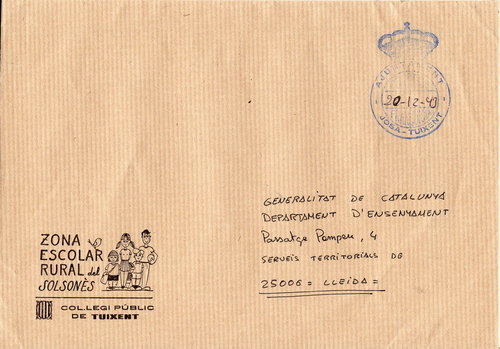 AJUNTAMENT
20-12-90
JOSA - TUIXENT
GENERALITAT DE CATALUNYA
DEPARTAMENT D'ENSENYAMENT
Passatge Pompeu, 4
SERVEIS TERRITORIALS DE
25006 = LLEIDA =
ZONA
ESCOLAR
RURAL del
SOLSONÈS
COL.LEGI PÚBLIC
DE TUIXENT